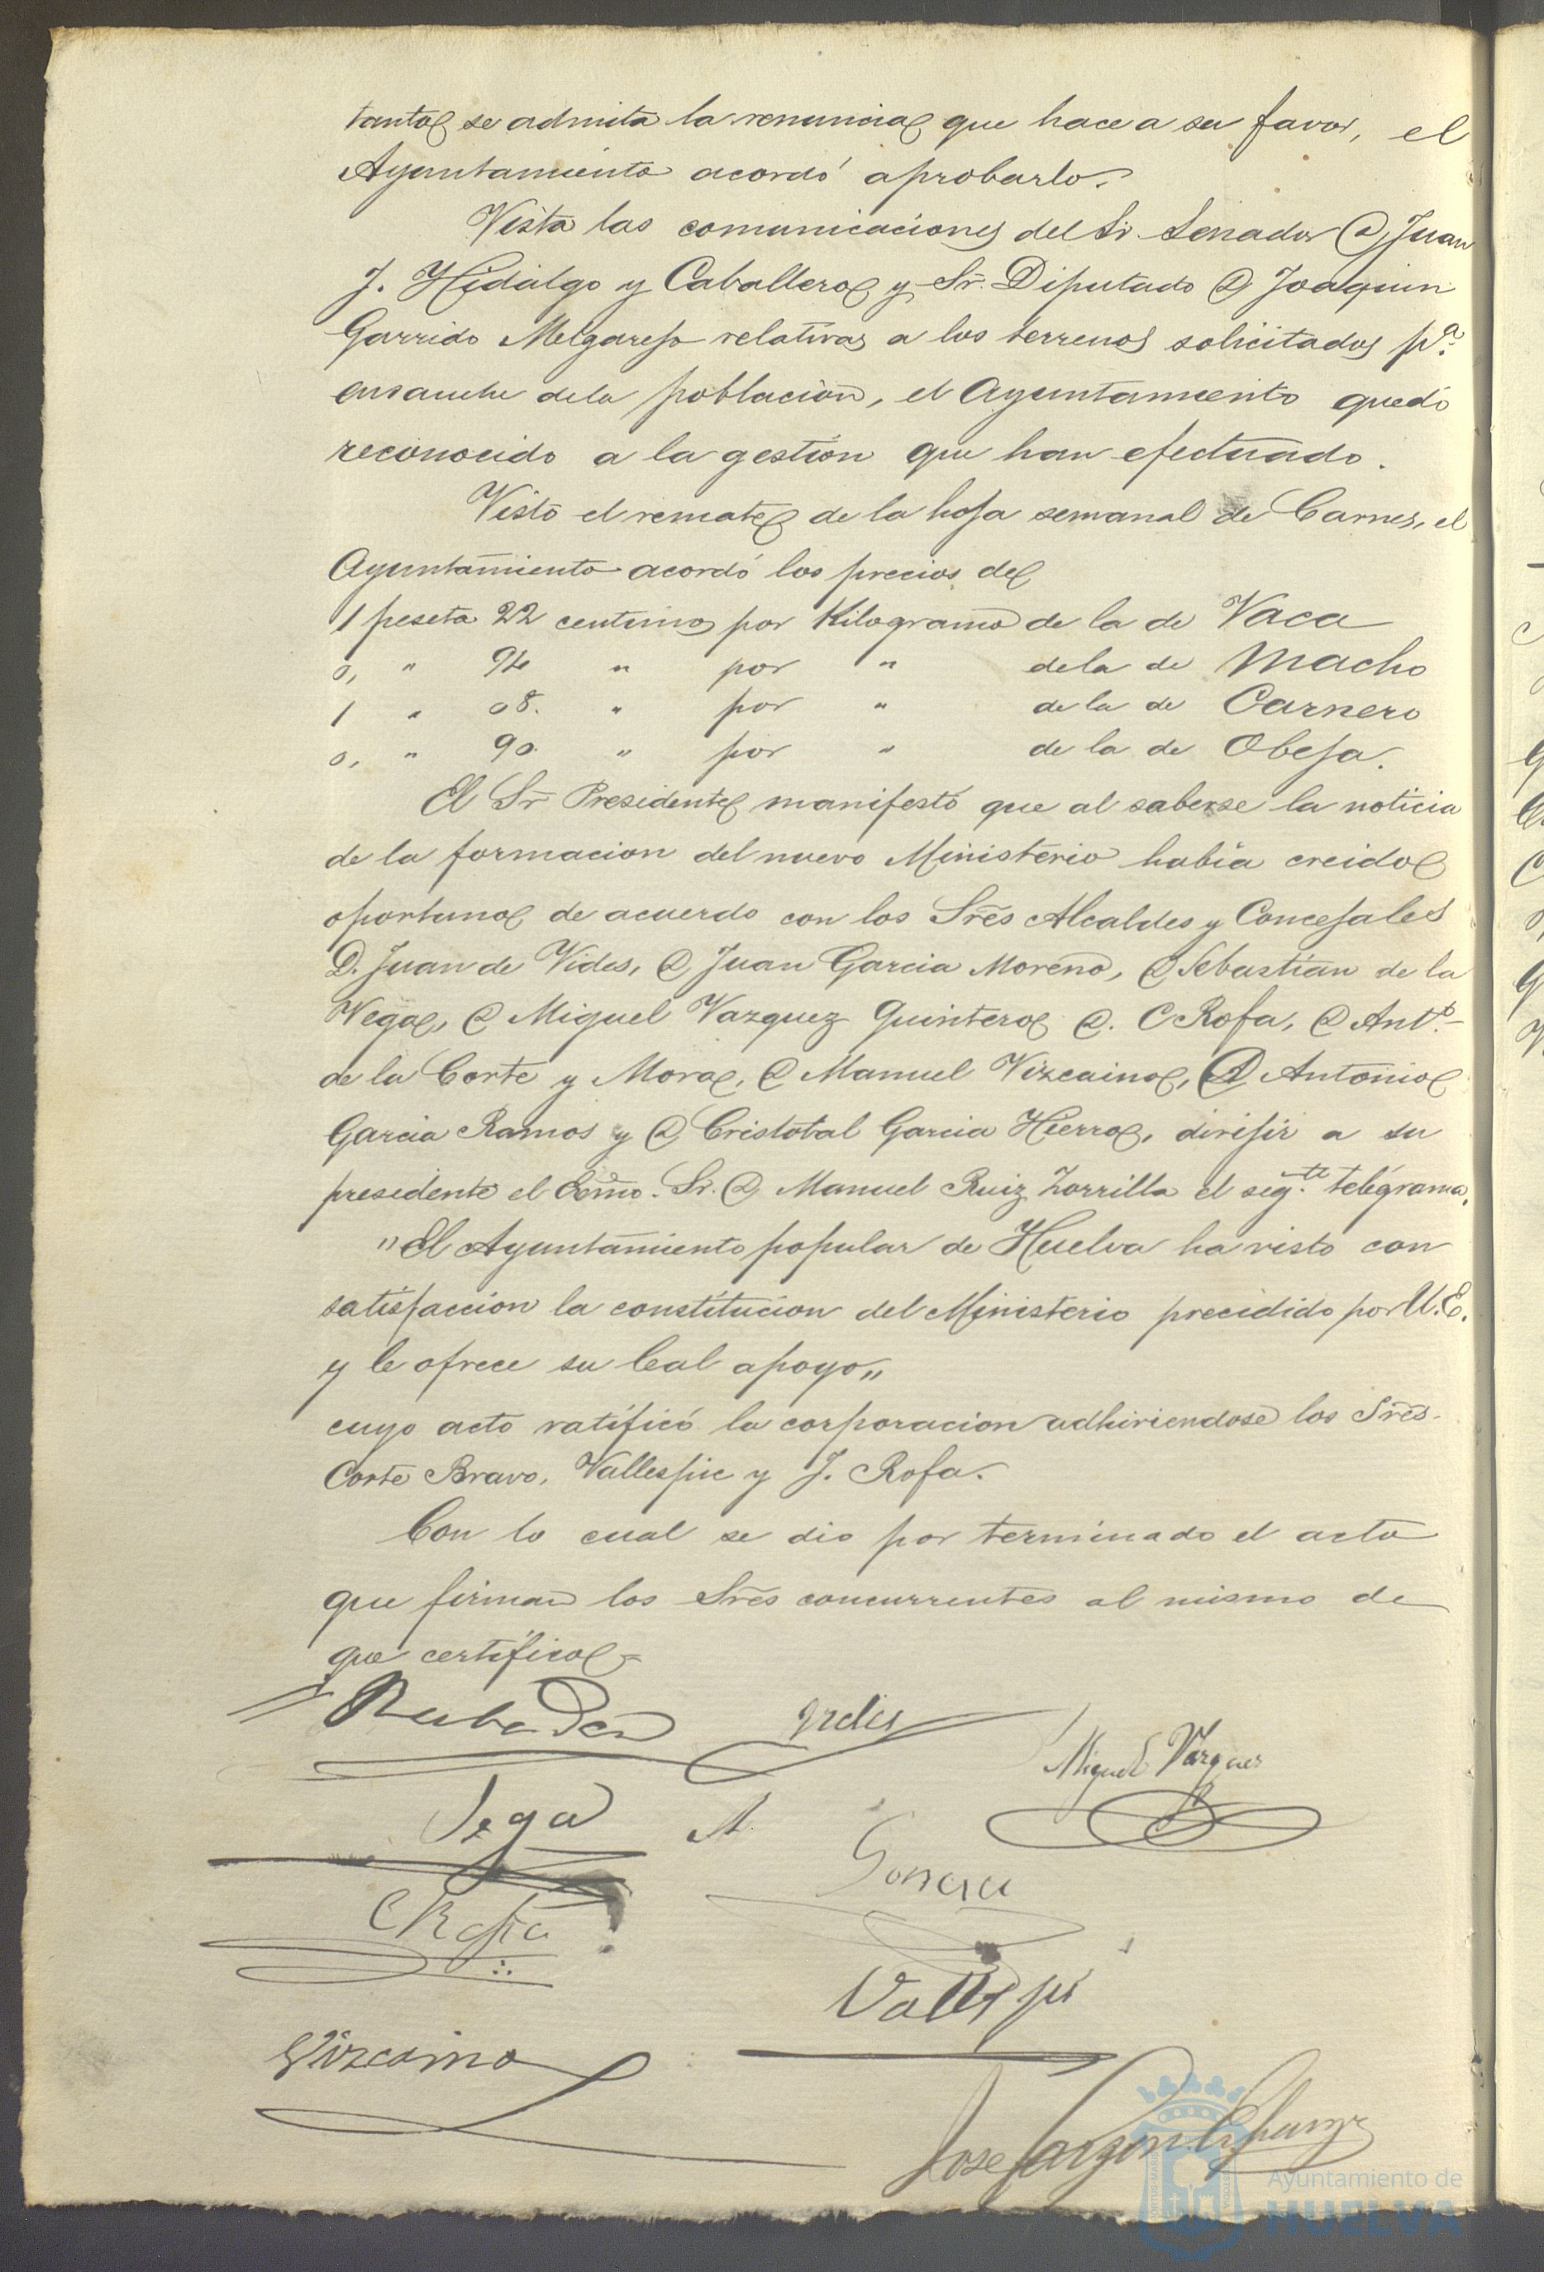 tanto se admita la renuncia que hace a su favor, el
Ayuntamiento acordó aprobarlo.
Vista las comunicaciones del Sr. Senador D. Juan
J. Hidalgo y Caballero y Sr. Diputado D. Joaquin
Garrido Melgarejo relativas a los terrenos solicitados pª.
ensanche dela poblacion, el Ayuntamiento quedó
reconocido a la gestión que han efectuado.
Visto el remate de la hoja semanal de Carnes, el
Ayuntamiento acordó los precios de
1 peseta 22 centimos por Kilogramo de la de Vaca
0, " 94 " por " dela de Macho
1 " 08. " por " de la de Carnero
0, " 90. " por " de la de Obeja.
El Sr Presidente manifestó que al saberse la noticia
de la formacion del nuevo Ministerio habia creido
oportuno de acuerdo con los Sres Alcaldes y Concejales
D. Juan de Vides, D. Juan Garcia Moreno, D. Sebastian de la
Vega, D. Miguel Vazquez Quintero D. C Rofa, D. Antº.
de la Corte y Mora, D. Manuel Vizcaino, D. Antonio
Garcia Ramos y D. Cristobal Garcia Hierro, dirijir a su
presidente el Excmo. Sr. D. Manuel Ruiz Zorrilla el sigte. telégrama.
"El Ayuntamiento popular de Huelva ha visto con
satisfaccion la constitucion del Ministerio precidido por V.E.
y le ofrece su leal apoyo"
cuyo acto ratíficó la corporacion adhiriendose los Sres.
Corte Bravo, Vallespin y J. Rofa.
Con lo cual se dio por terminado el acto
que firman los Sres concurrentes al mismo de
que certífico=
Vides
Miguel Vazquez
Vega
C Rofa
Vallespi
Vizcaino
Jose Garzon
Ayuntamiento de
HUELVA